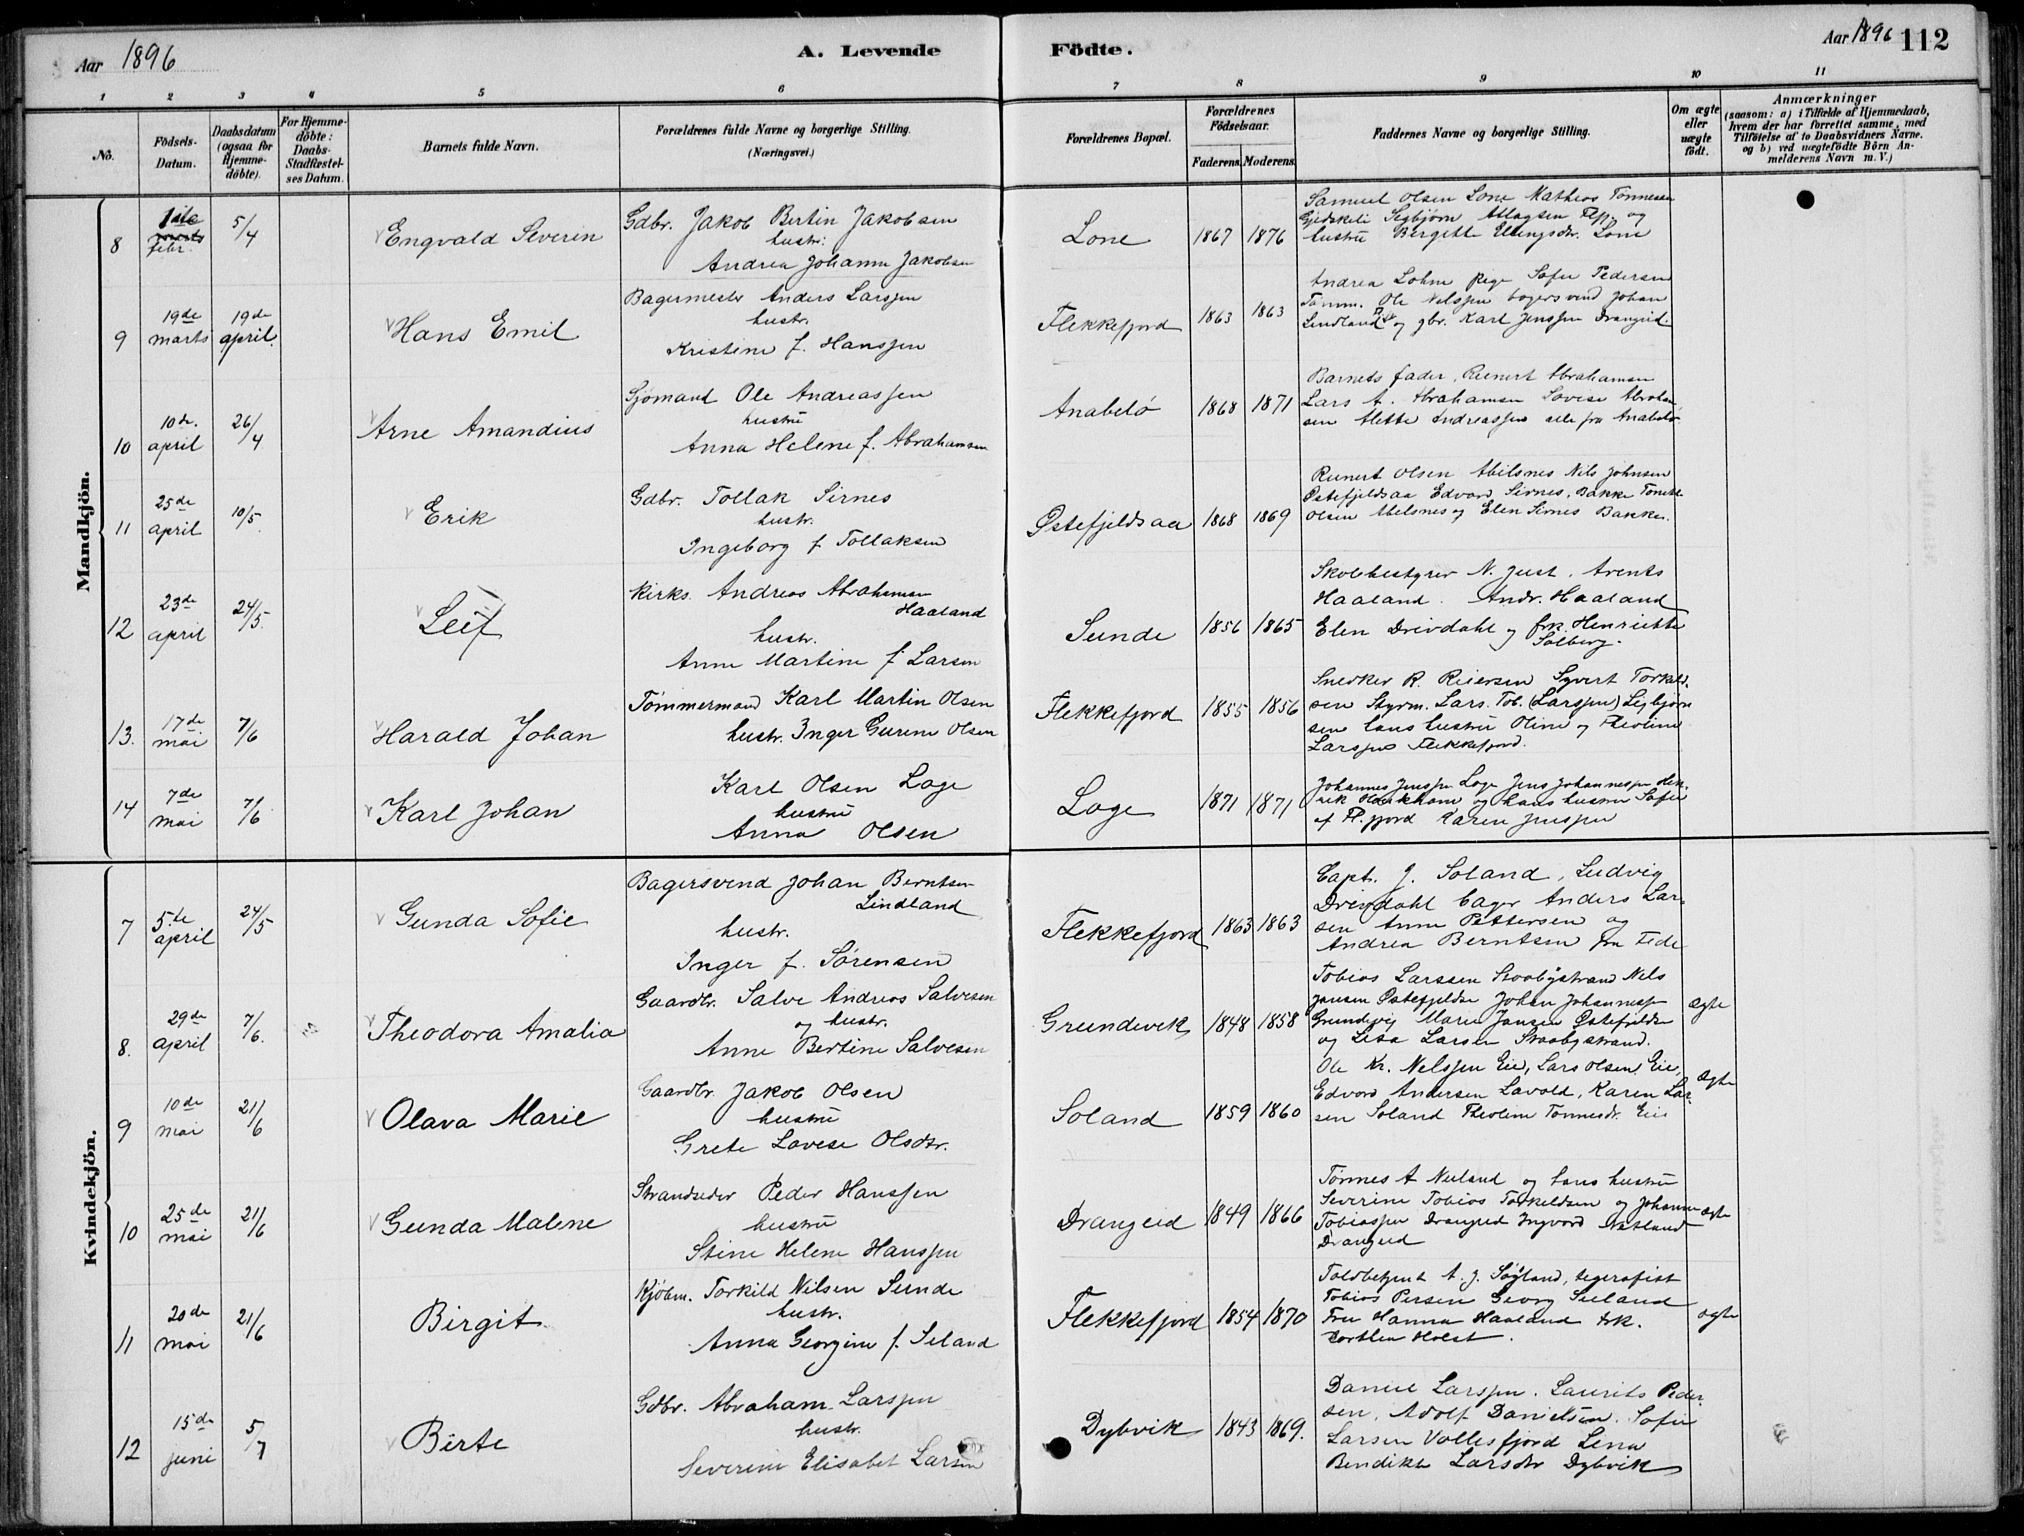 Aar 1896
A. Levende
Födte.
Aar 1896 112
1 2 3 4 5 6 7 8 9 10 11
No.
Födsels-Datum.
Daabsdatum (ogsaa for Hjemme-döbte).
For Hjemme-döbte: Daabs-Stadfæstel-ses Datum.
Barnets fulde Navn.
Forældrenes fulde Navne og borgerlige Stilling.
(Næringsvei.)
Forældrenes Bopæl.
Forældrenes Födselsaar.
Faderens. Moderens.
Faddernes Navne og borgerlige Stilling.
Om ægte eller uægte födt.
Anmærkninger
(saasom: a) i Tilfælde af Hjemmedaab, hvem der har forrettet samme, med Tilföielse af to Daabsvidners Navne, og b) ved uægtefödte Börn An-melderens Navn m. V.)
Mandkjön.
8 febr. 5/4 Engvald Severin
Gdbr. Jakob Bertin Jakobsen
hustr:
Andrea Johanne Jakobsen
Lone 1867 1876
Samuel Olsen Lone Mathias Tønnesen
Sigbjørn Atlagsen Flp. og
hustru Bergitte Ellingsdtr. Lone
9 19de marts 19de april. Hans Emil
Bagermester Anders Larssen
hustr.
Kristine f. Hanssen
Flekkefjord 1863 1863
Andrea Lohne pige Sofie Pedersen
Tømm. Ole Nilssen bagersvend Johan
Lindland og gbr. Karl Jenssen Drangeid.
10 10de. april 26/4 Arne Amandius
Sjömand Ole Andreassen
hustru
Anna Helene f. Abrahamsen
Anabelö 1868 1871
Barnets fader, Reinert Abrahamsen
Lars A. Abrahamsen Lovise Abraham
sen Alette Andreassen alle fra Anabelö
11 25de april 10/5. Erik
Gdbr. Tollak Sirnes
hustr.
Ingeborg f Tollaksen
Østefjeldsaa 1868 1869
Reinert Olsen Abelsnes Nils Johnsen
Østefjeldsaa Edvard Sirnes, Bakke
Olsen Abelsnes og Elen Sirnes Bakke.
12 23de april 24/5. Leif
Kirks. Andreas Abrahamsen
Haaland
hustr.
Anne Martine f Larsen
Sunde 1856 1865
Skolebestyrer N. Just. Arents
Haaland. Andr. Haaland
Elen Drivdahl og frk. Henriette
Solberg.
13. 17de mai 7/6 Harald Johan
Tømmermand Karl Martin Olsen
hustr. Inger Gurine Olsen
Flekkefjord 1855 1856
Snedker R. Reiersen Syvert Torkild
sen Styrm. Lars. Tob. (Larssen) Sigbjørn
sen hans hustru Oline og Theoline
Larssen Flekkefjord.
14 7de mai 7/6 Karl Johan
Karl Olsen Loge
hustru
Anna Olsen
Loge 1871 1871
Johannes Jenssen Loge Jens Johannessen Hen
rik og hans hustru Sofie
af Fl.fjord Karen Jenssen
Kvindekjön.
7 5te april 24/5 Gunda Sofie
Bagersvend Johan Berntsen
Lindland
hustr.
Inger f. Sörensen
Flekkefjord 1863 1863
Capt. J. Soland, Ludvig
Drivdahl bager Anders Lar
sen Anne Pettersen og
Andrea Berntsen fra Fede
8. 29de april 7/6. Theodora Amalia
Gaardbr. Salve Andreas Salvesen
og hustr.
Anne Bertine Salvesen
Grundevik 1848 1858
Tobias Larssen Stoobystrand Nils
Jansen Østefjeldse Johan Johannessen
Grundevig Maren Jansen Østefjeldse
og Lisa Larsen Stoobystrand.
Ægte
9 10de mai 21/6 Olava Marie
Gaardbr. Jakob Olsen
hustru
Grete Lovise Olsdtr.
Soland 1859 1860
Ole Kr. Nelssen Eie, Lars Olsen, Eie,
Edvard Andersen Lavold, Karen Lar
sen Soland Theoline Tonnesdtr. Eie
Ægte
10 25de mai 21/6 Gunda Malene
Strandsider Peder Hanssen
hustru
Stine Helene Hanssen
Drangeid 1849 1866
Tønnes A Nuland og hans hustru
Severine Tobias Torkeldsen og Johanne
Tobiassen Drangeid Ingvard Natland
Drangeid
ægte
11 20de mai 21/6 Birgit
Kjöbm. Torkild Nilsen Sunde
hustr.
Anna Georgine f. Seland
Flekkefjord 1854 1870
Toldbetjent A. J. Söyland, tegerafist
Tobias Persen Georg Seeland
Fru Hanna Haaland frk.
Holst.
ægte
12 15de juni 5/7 Birte
Gdbr. Abraham Larssen
hustr.
Severine Elisabet Larsen
Dybvik 1843 1869.
Daniel Larssen. Laurits Peder
sen, Adolf Danielsen. Sofie
Larsen Vollesfjord Lena
Bendikte Larsdtr Dybvik